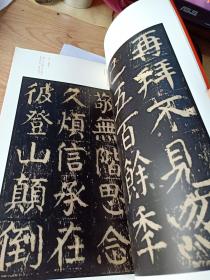 再拜不見忽
已五百餘年
敬無階思念
久煩信承在
彼登山顛倒